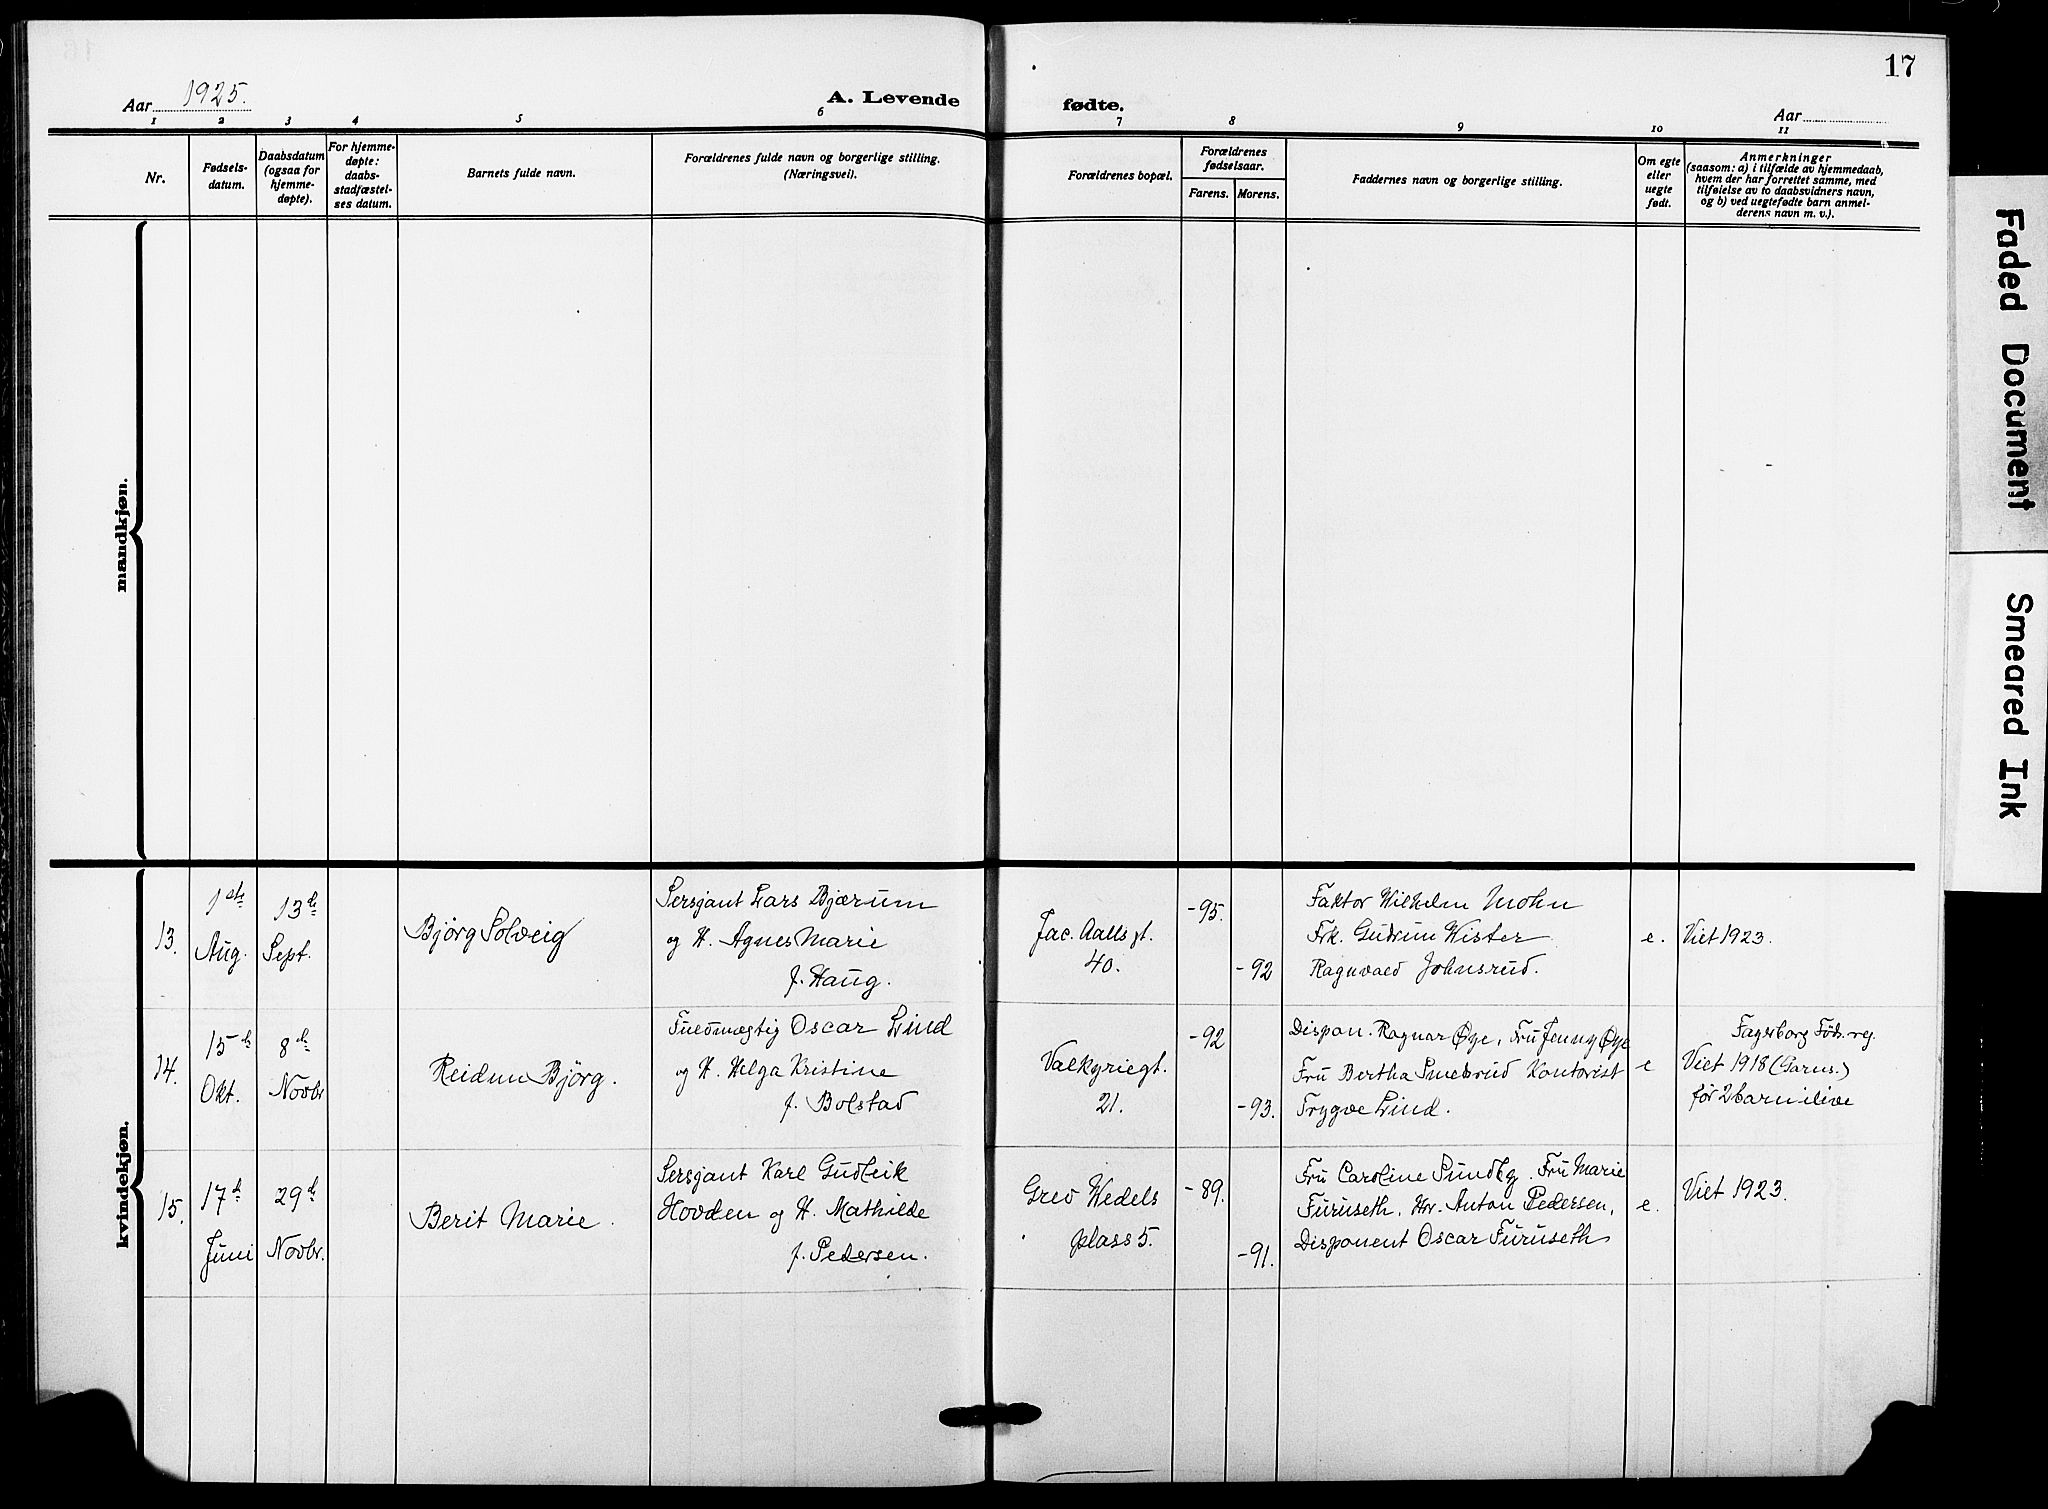 17
Aar 1925.
A. Levende
fødte.
Aar
1 2 3 4 5 6 7 8 9 10 11
Nr.
Fødsels-
datum.
Daabsdatum
(ogsaa for
hjemme-
døpte).
For hjemme-
døpte:
daabs-
stadfæstel-
ses datum.
Barnets fulde navn.
Forældrenes fulde navn og borgerlige stilling.
(Næringsvei).
Forældrenes bopæl.
Forældrenes
fødselsaar.
Farens. Morens.
Faddernes navn og borgerlige stilling.
Om egte
eller
uegte
født.
Anmerkninger
(saasom: a) i tilfælde av hjemmedaab,
hvem der har forrettet samme, med
tilføielse av to daabsvidners navn,
og b) ved uegtefødte barn anmel-
derens navn m. v.).
mandkjøn.
kvindekjøn.
13.
1ste
Aug.
13de
Sept.
Bjørg Solveig
Sersjant Lars Bjærum
og H. Agnes Marie
f. Haug.
Jac. Aalls gt.
40.
-95.
-92
Faktor Wilhelm Mohn
Frk. Gudrun Wister
Ragnvald Johnsrud.
e.
Viet 1923.
14.
15de
Okt.
8de
Novbr
Reidun Bjørg.
Fuldmægtig Oscar Lind
og H. Helga Kristine
f. Bolstad
Valkyriegt.
21.
-92
-93.
Dispon. Ragnar Øye, Fru Jenny Øye
Fru Bertha Smebsrud Kontorist
Trygve Lind.
e
Fagerborg Føds. reg.
Viet 1918 (Garns.)
før 2 barn ilive
15.
17de
Juni
29de
Novbr.
Berit Marie.
Sersjant Karl Gudleik
Hovden og H. Mathilde
f. Pedersen.
Grev Wedels
plass 5.
-89.
-91.
Fru Caroline Sundby. Fru Marie
Furuseth, Hr. Anton Pedersen,
Disponent Oscar Furuseth
e.
Viet 1923.
Faded Document
Smeared Ink